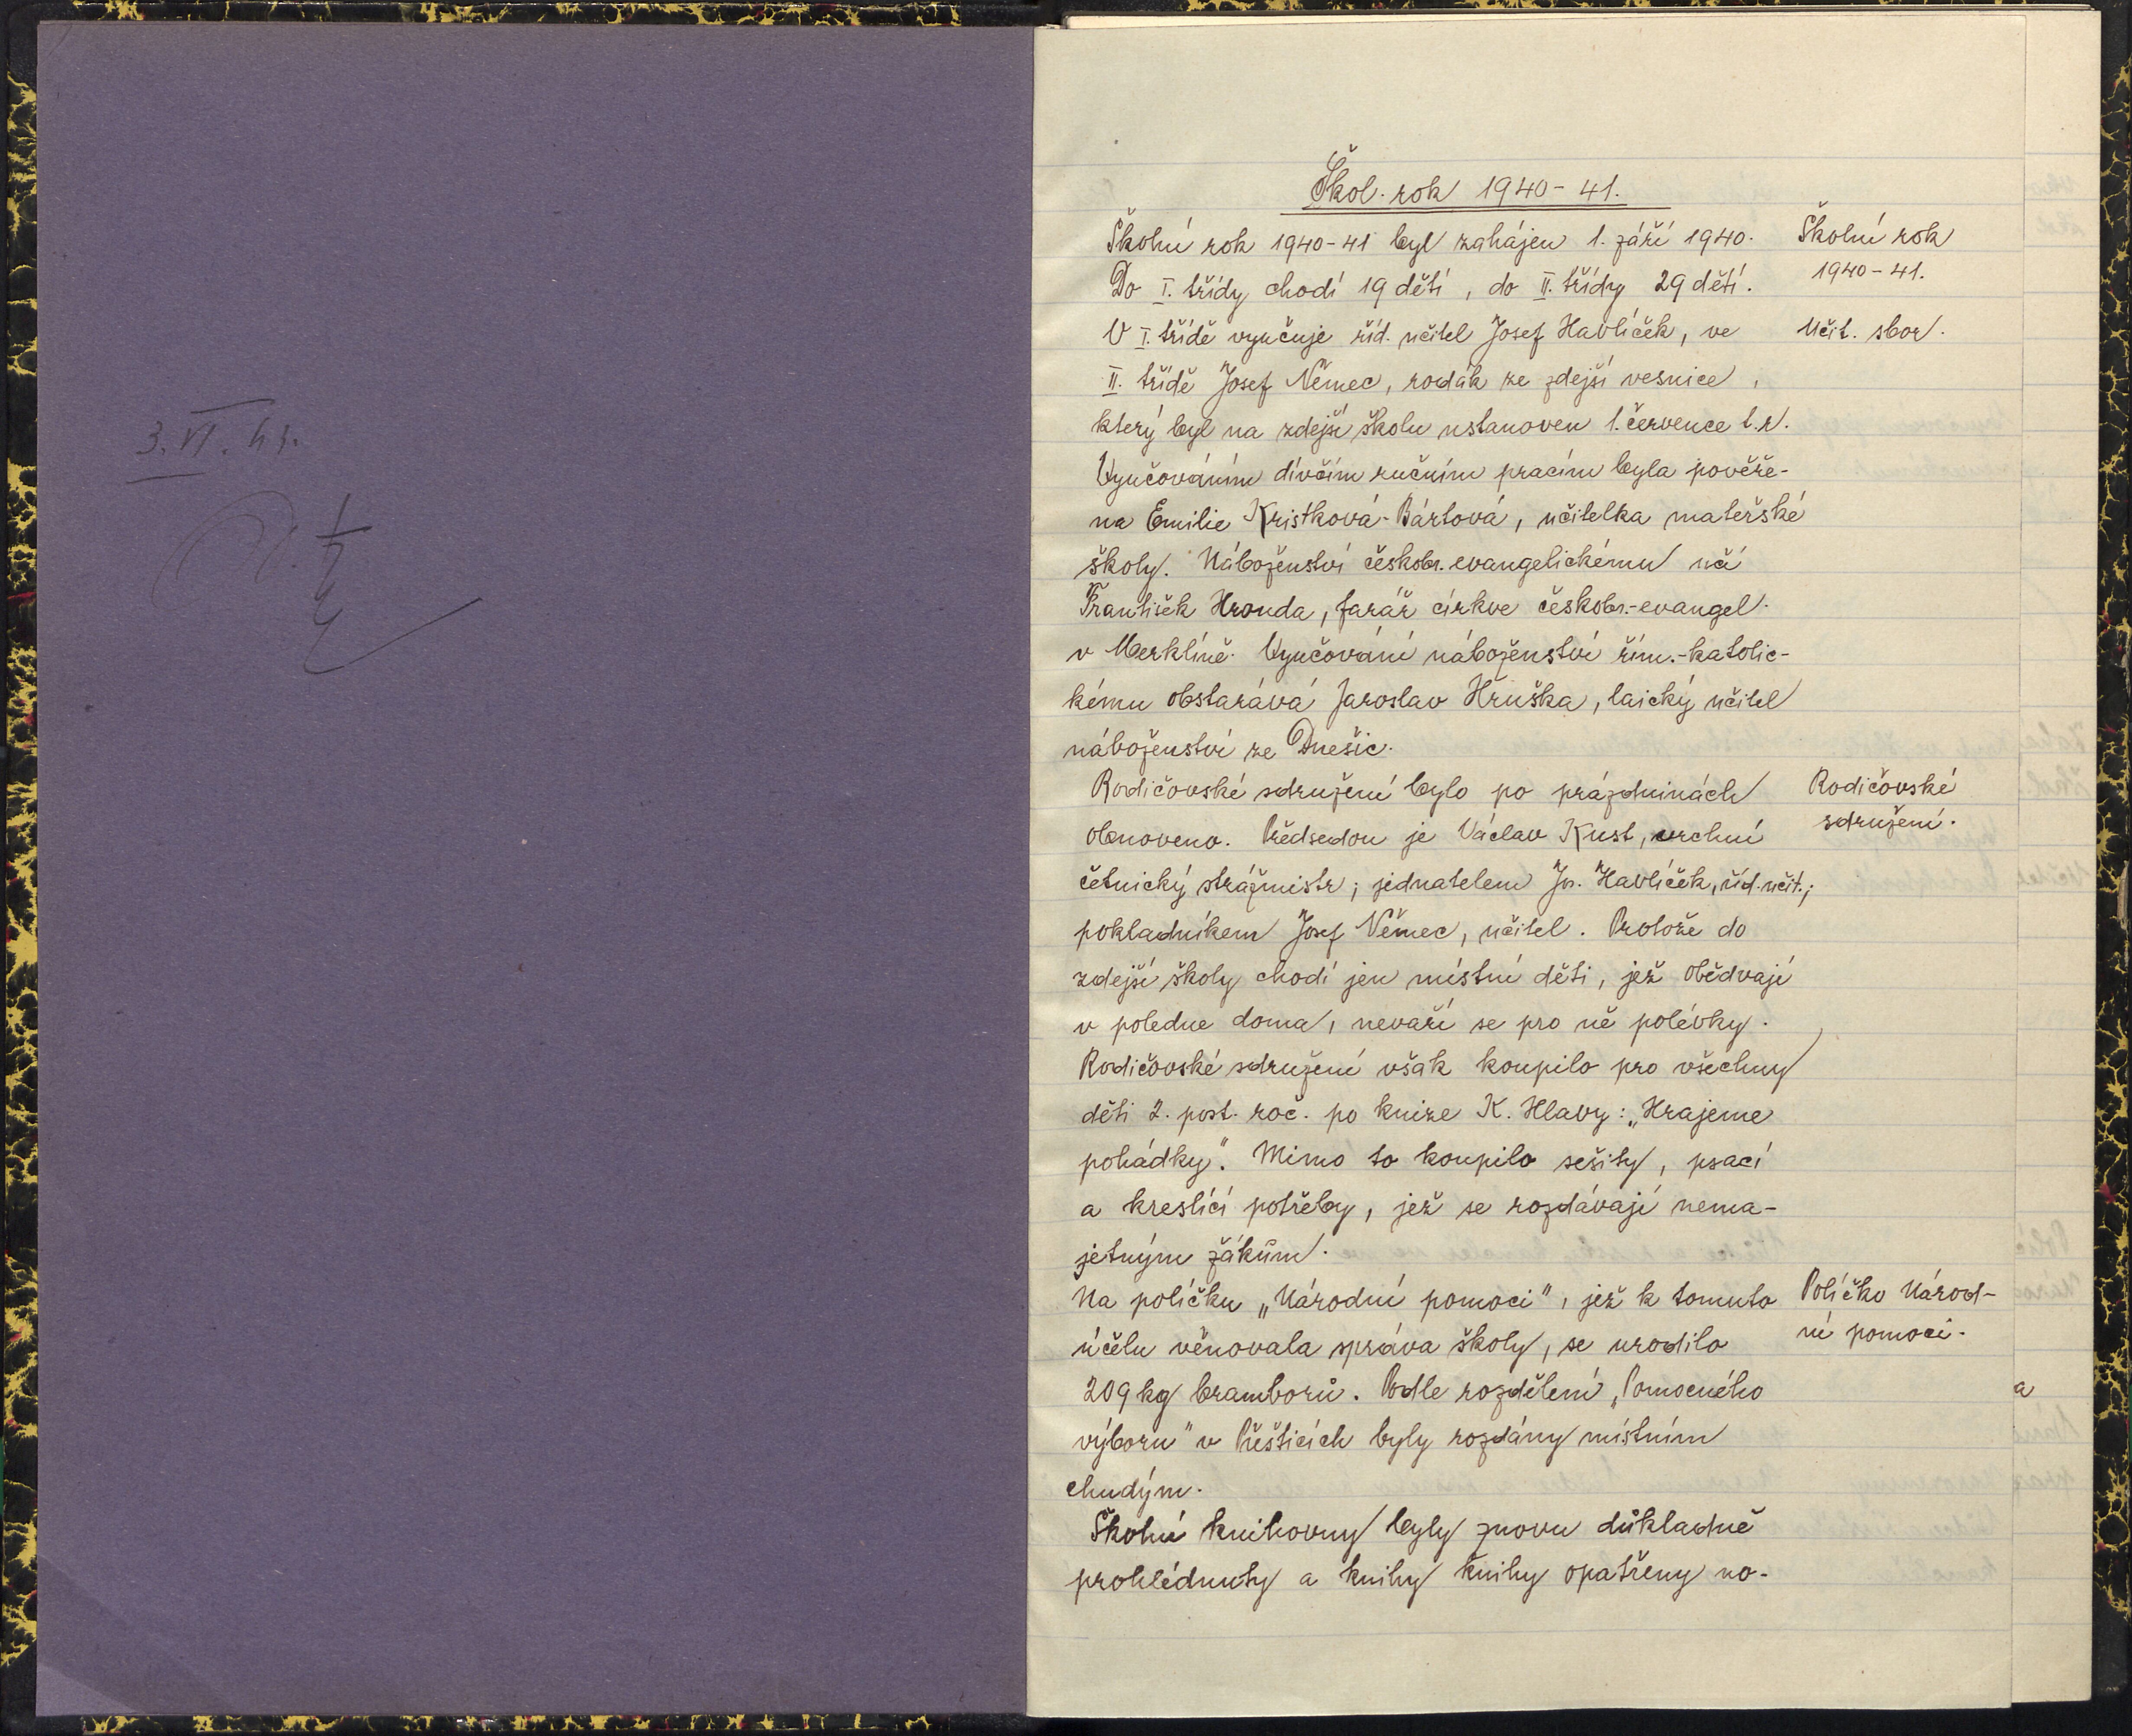 3. VI. 43.
Škol. rok 1940-41.
Školní rok 1940-41 byl zahájen 1. září 1940.
Školní rok
1940-41.
Do I. třídy chodí 19 dětí, do II. třídy 29 dětí.
V I. třídě vyučuje říd. učitel Josef Havlíček, ve
Učit. sbor.
II. třídě Josef Němec, rodák ze zdejší vesnice,
který byl na zdejší školu ustanoven 1. července t.r.
Vyučováním dívčím ručním pracím byla pověře-
na Emilie Kristková-Bártová, učitelka mateřské
školy. Náboženství českobr. evangelickému učí
František Hronda, farář církve českobr.-evangel.
v Merklíně. Vyučování náboženství řím.-katolic-
kému obstarává Jaroslav Hruška, laický učitel
náboženství ze Dnešic.
Rodičovské sdružení bylo po prázdninách
Rodičovské
sdružení.
obnoveno. Předsedou je Václav Kust, vrchní
četnický strážmistr; jednatelem Jos. Havlíček, říd. učit.;
pokladníkem Josef Němec, učitel. Protože do
zdejší školy chodí jen místní děti, jež obědvají
v poledne doma, nevaří se pro ně polévky.
Rodičovské sdružení však koupilo pro všechny
děti 2. post. roč. po knize K. Hlavy: „Hrajeme
pohádky". Mimo to koupilo sešity, psací
a kreslící potřeby, jež se rozdávají nema-
jetným žákům.
Na políčku „Národní pomoci", jež k tomuto
Políčko Národ-
ní pomoci.
účelu věnovala správa školy, se urodilo
209 kg bramborů. Podle rozdělení „Pomocného
výboru" v Přešticích byly rozdány místním
chudým.
Školní knihovny byly znovu důkladně
prohlédnuty a knihy knihy opatřeny no-